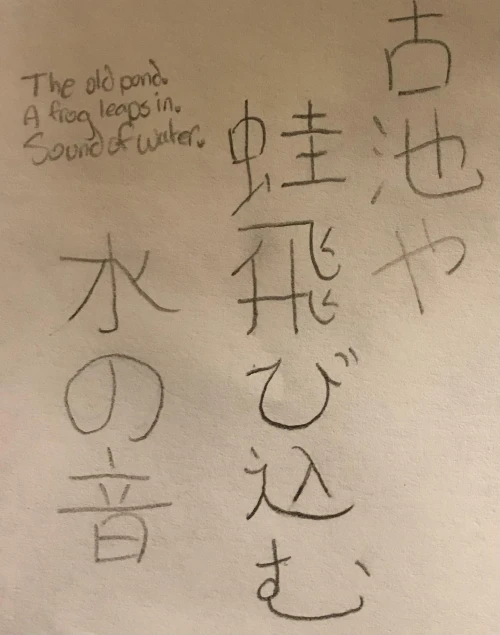 古池や
蛙飛び込む
水の音
The old pond.
A frog leaps in.
Sound of water.